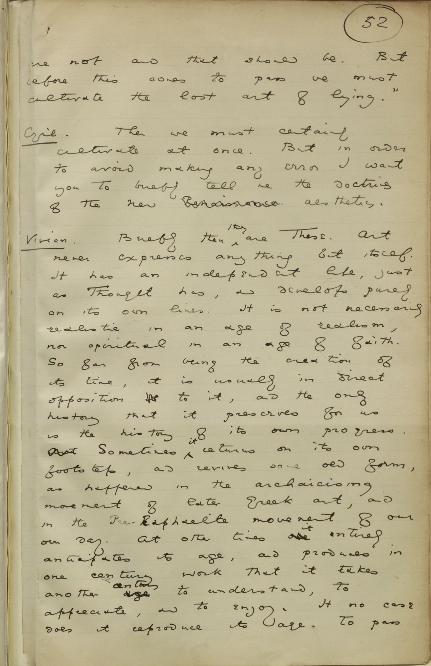 52
are not and that should be. But
before this comes to pass we must
cultivate the lost art of lying."
Cyril. Then we must certainly
cultivate at once. But in order
to avoid making any error I want
you to briefly tell me the doctrines
of the new Renaissance aesthetics.
Vivian. Briefly then they are these. Art
never expresses anything but itself.
It has an independent life, just
as Thought has, and develops purely
on its own lines. It is not necessarily
realistic in an age of realism,
nor spiritual in an age of faith.
So far from being the creation of
its time, it is usually in direct
opposition to it, and the only
history that it preserves for us
is the history of its own progress.
Sometimes it returns on its own
footsteps, and revives some old form,
as happened in the archaicising
movement of later Greek art, and
in the Pre-Raphaelite movement of our
own day. At other times it entirely
anticipates its age, and produces in
one century work that it takes
another century to understand, to
appreciate, and to enjoy. It no case
does it reproduce its age. To pass